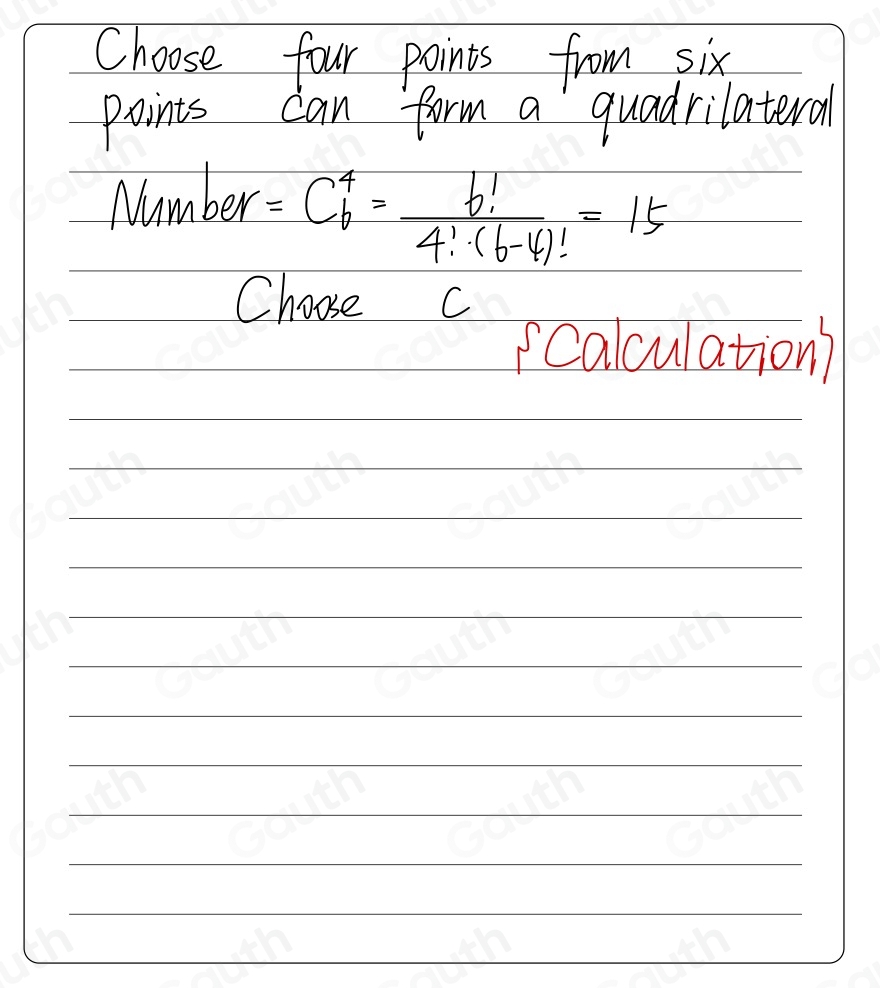 Choose four points from six
points can form a quadrilateral
Number = C₆⁴ = 6! / 4!·(6-4)! = 15
Choose C
{Calculation}
Gauth